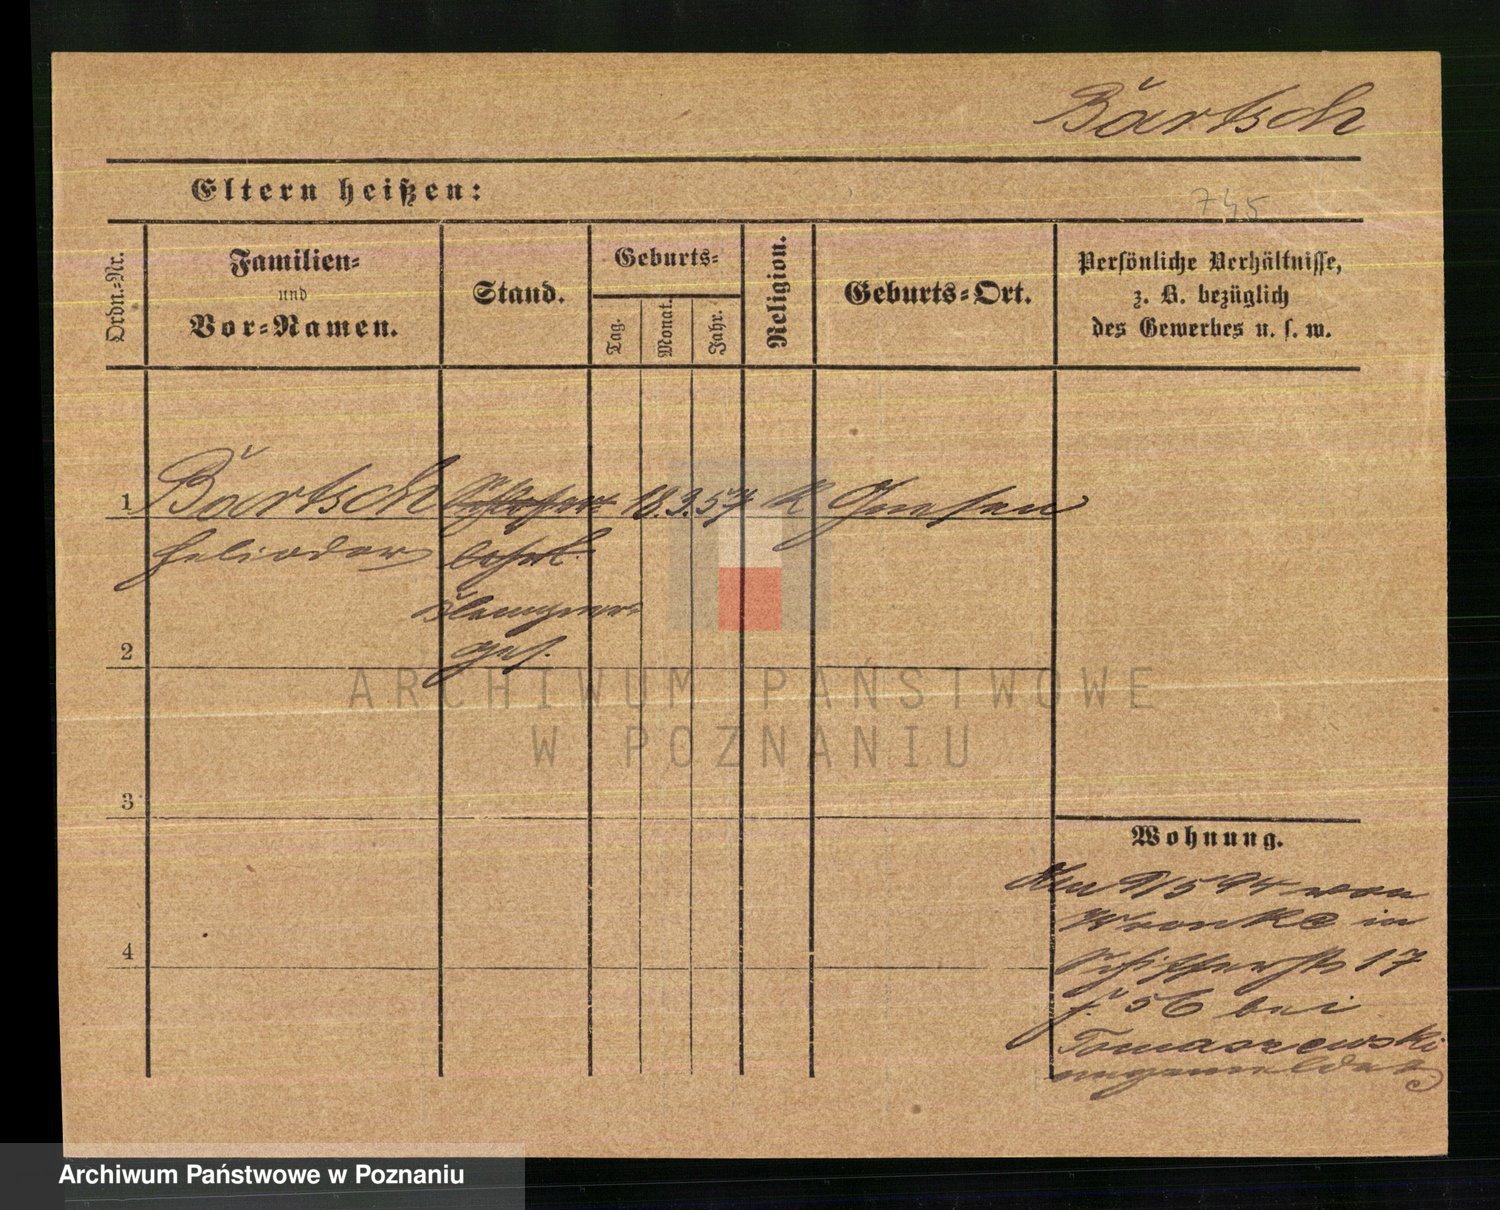 Bärtsch
Eltern heißen:
745
Ordn.-Nr.
Familien-
und
Vor-Namen.
Stand.
Geburts-
Tag.
Monat.
Jahr.
Religion.
Geburts-Ort.
Persönliche Verhältnisse,
z. B. bezüglich
des Gewerbes u. s. w.
1 Bärtsch 18. 9. 57 K
Heliodor
ges.
2
3
4
Wohnung.
Am 9/5 94 von
Wronke in
Schifferstr 17
bei
Tomaszewski
angemeldet
ARCHIWUM PAŃSTWOWE
W POZNANIU
Archiwum Państwowe w Poznaniu